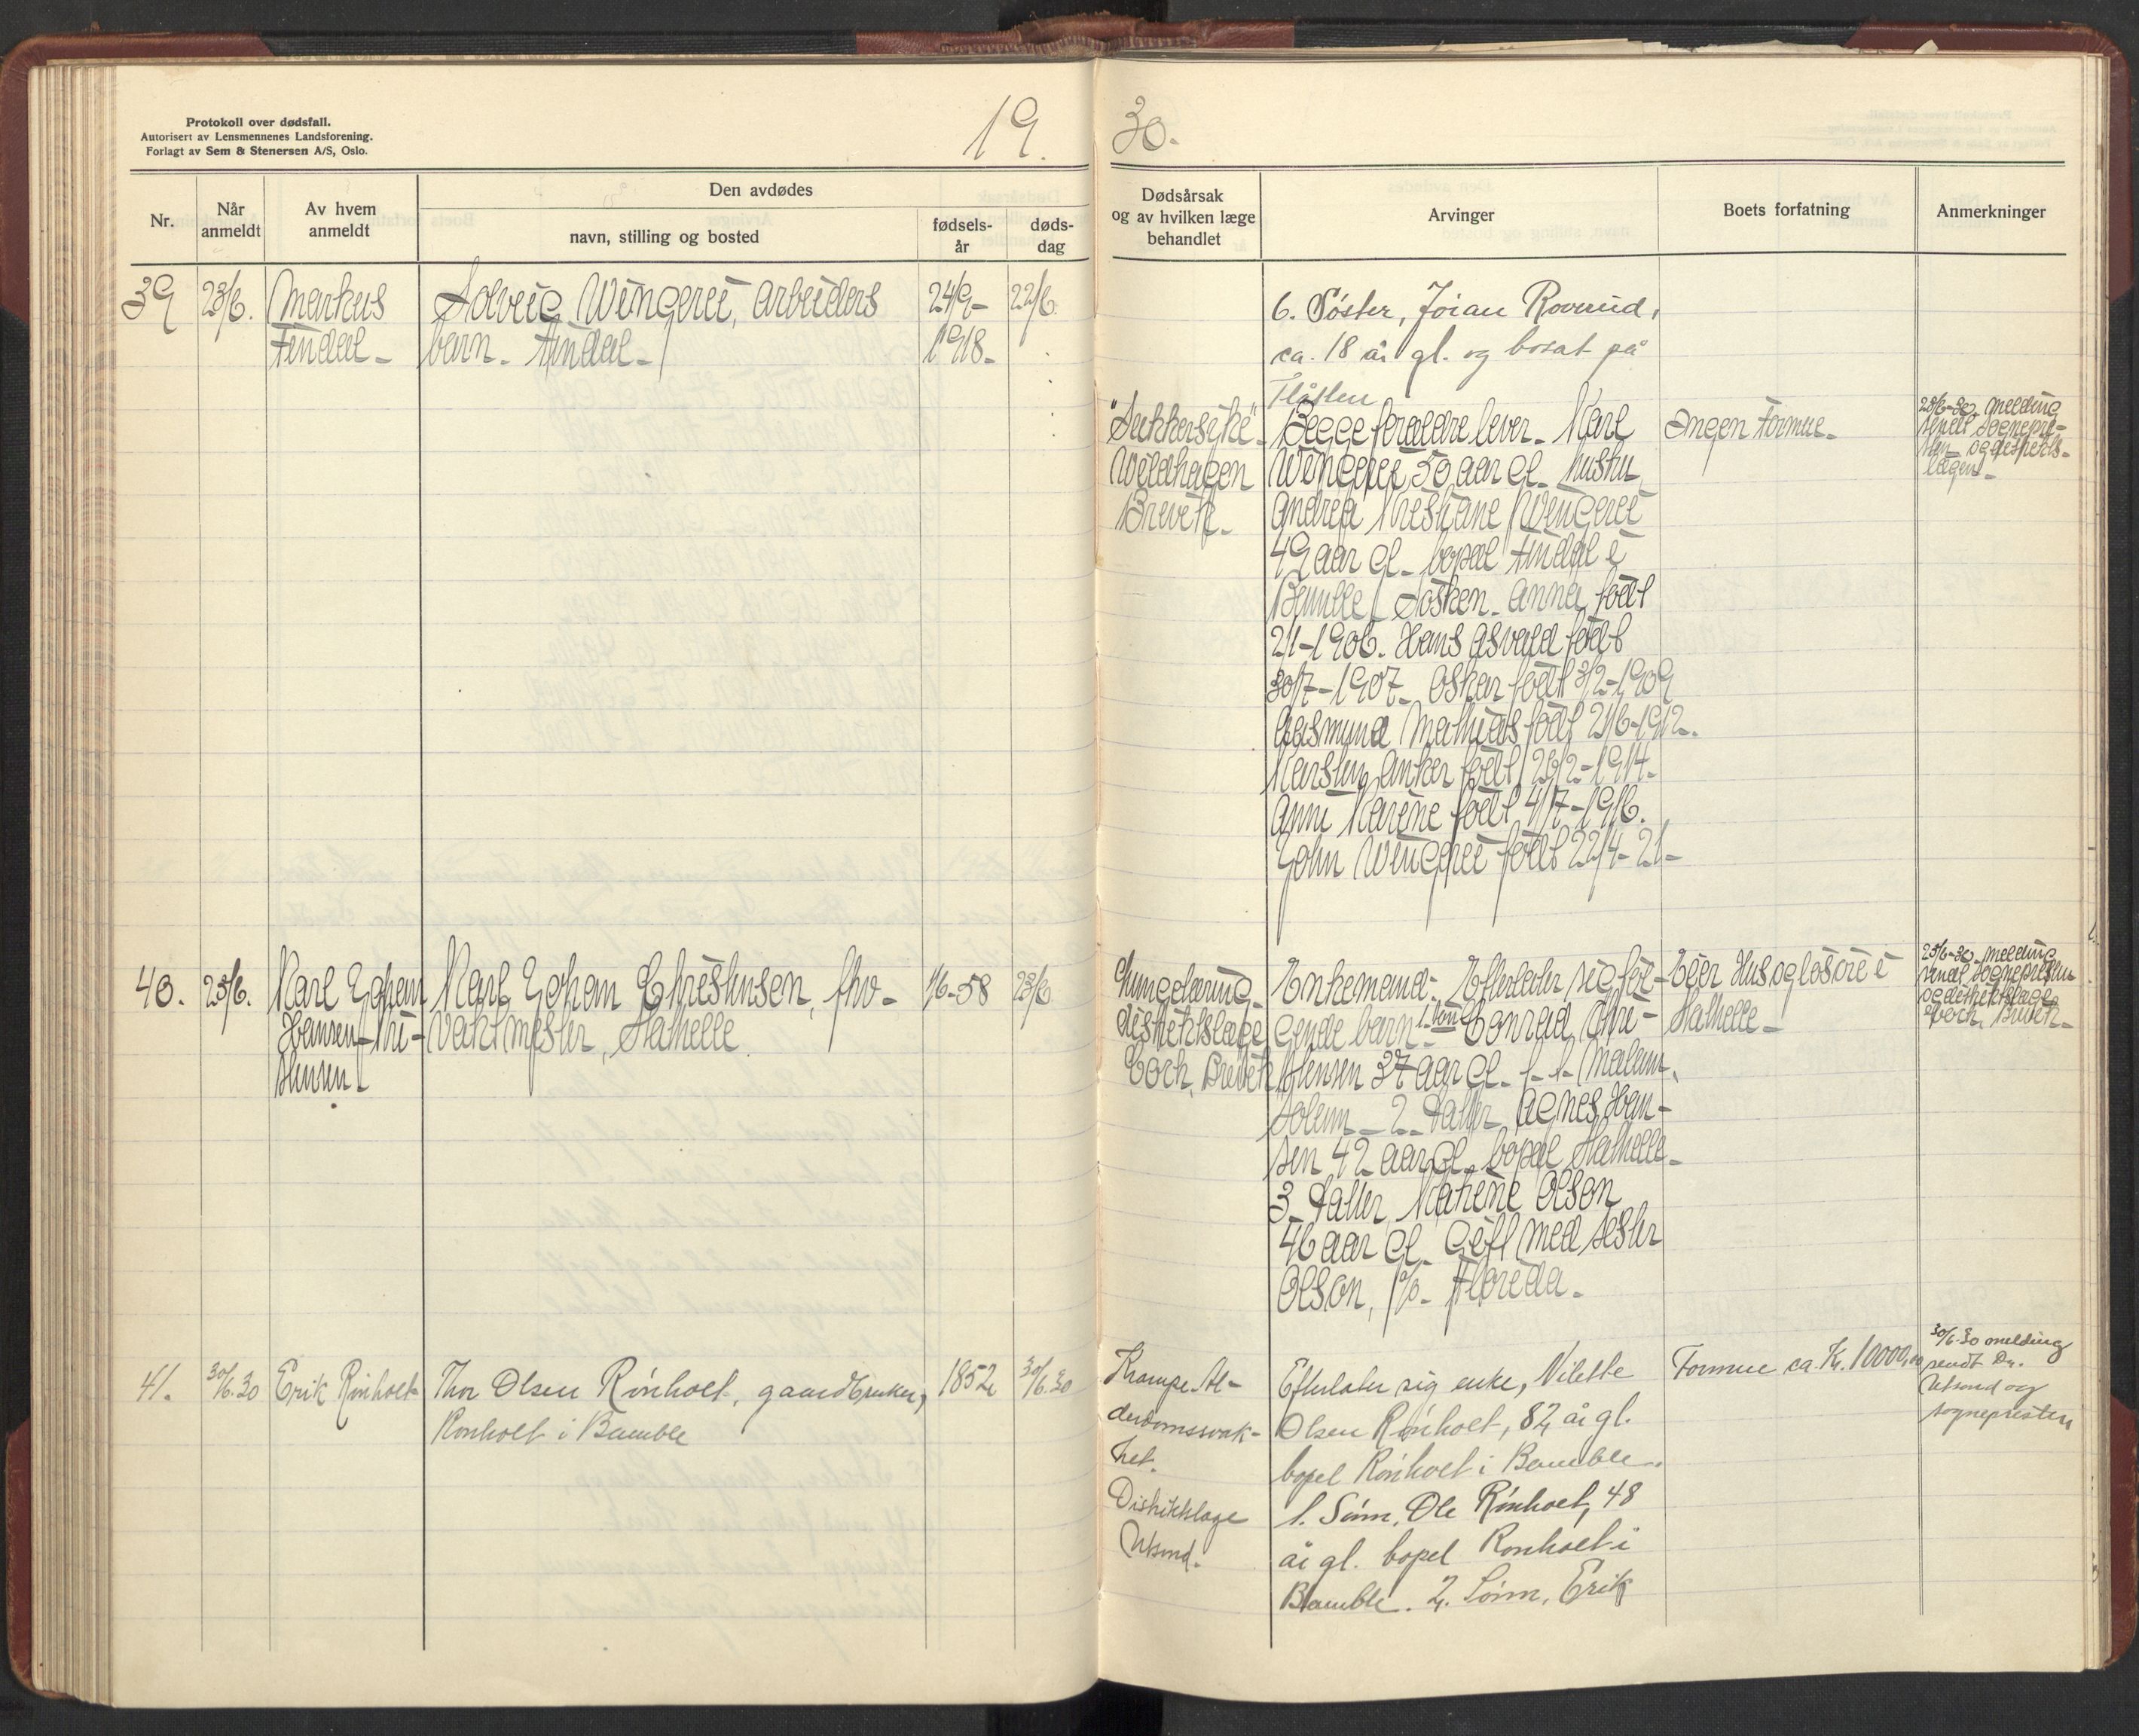 Protokoll over dødsfall.
Autorisert av Lensmennenes Landsforening.
Forlagt av Sem & Stenersen A/S, Oslo.
19
30.
Nr.
Når
anmeldt
Av hvem
anmeldt
Den avdødes
navn, stilling og bosted
fødsels-
år
døds-
dag
Dødsårsak
og av hvilken læge
behandlet
Arvinger
Boets forfatning
Anmerkninger
6. Söster, Joran Roverud,
ca. 18 år gl. og bosat på
39
23/6.
Markus
Findal-
Solveig Wingerei, Arbeiders
barn. Findal-
24/9-
1918-
22/6.
"Sukkersyke"-
Brevik-
Begge foræeldre lever. Karl
Wingerei 50 aar gl. hustru
Andrea Kristiane Wingerei
49 aar gl. bopæl Findal i
Bamble. Søsken. Anna født
2/1-1906. Hans Asvald født
30/7-1907. Oskar født 3/2-1909
Aasmund Mathias født 21/6-1912.
Karsten Anker født 26/2-1914.
Anne Karine født 4/7-1916.
John Wingerei født 22/4-21-
Ingen Formue-
25/6-30. melding
sendt sognepre-
sten og distrikts-
lægen-
40.
25/6.
Karl Johan
Hansen-Kri-
stensen-
Karl Johan Christensen, fhv-
Vaktmester, Stathelle
1/6-58
23/6
distriktslæge
Coch, Brevik
Enkemand. Efterlater sig føl-
gende barn. 1. søn Conrad Chri-
stensen 37 aar gl.
2. Datter Agnes Han-
sen 42 aar gl. bopæl Stathelle-
3. Datter Katrine Olson
46 aar gl. Gift med
Olson, Florida-
Eier Hus og løsøre i
Stathelle-
25/6-30. melding
sendt sognepresten
og distriktslæge
Coch, Brevik-
41.
30/6.30
Erik Rönholt
Thor Olsen Rönholt, gaardbruker,
Rönholt i Bamble
1852
30/6.30
Krampe. Al-
derdomssvak-
het.
Distriktslæge
Efterlater sig enke, Nilette
Olsen Rönholt, 82 år gl.
bopel Rönholt i Bamble.
1. Sönn, Ole Rönholt, 48
år gl. bopel Rönholt i
Bamble. 2. Sönn, Erik
Formue ca. Kr. 10000,00
30/6-30 melding
sendt Dr.
og
sognepresten